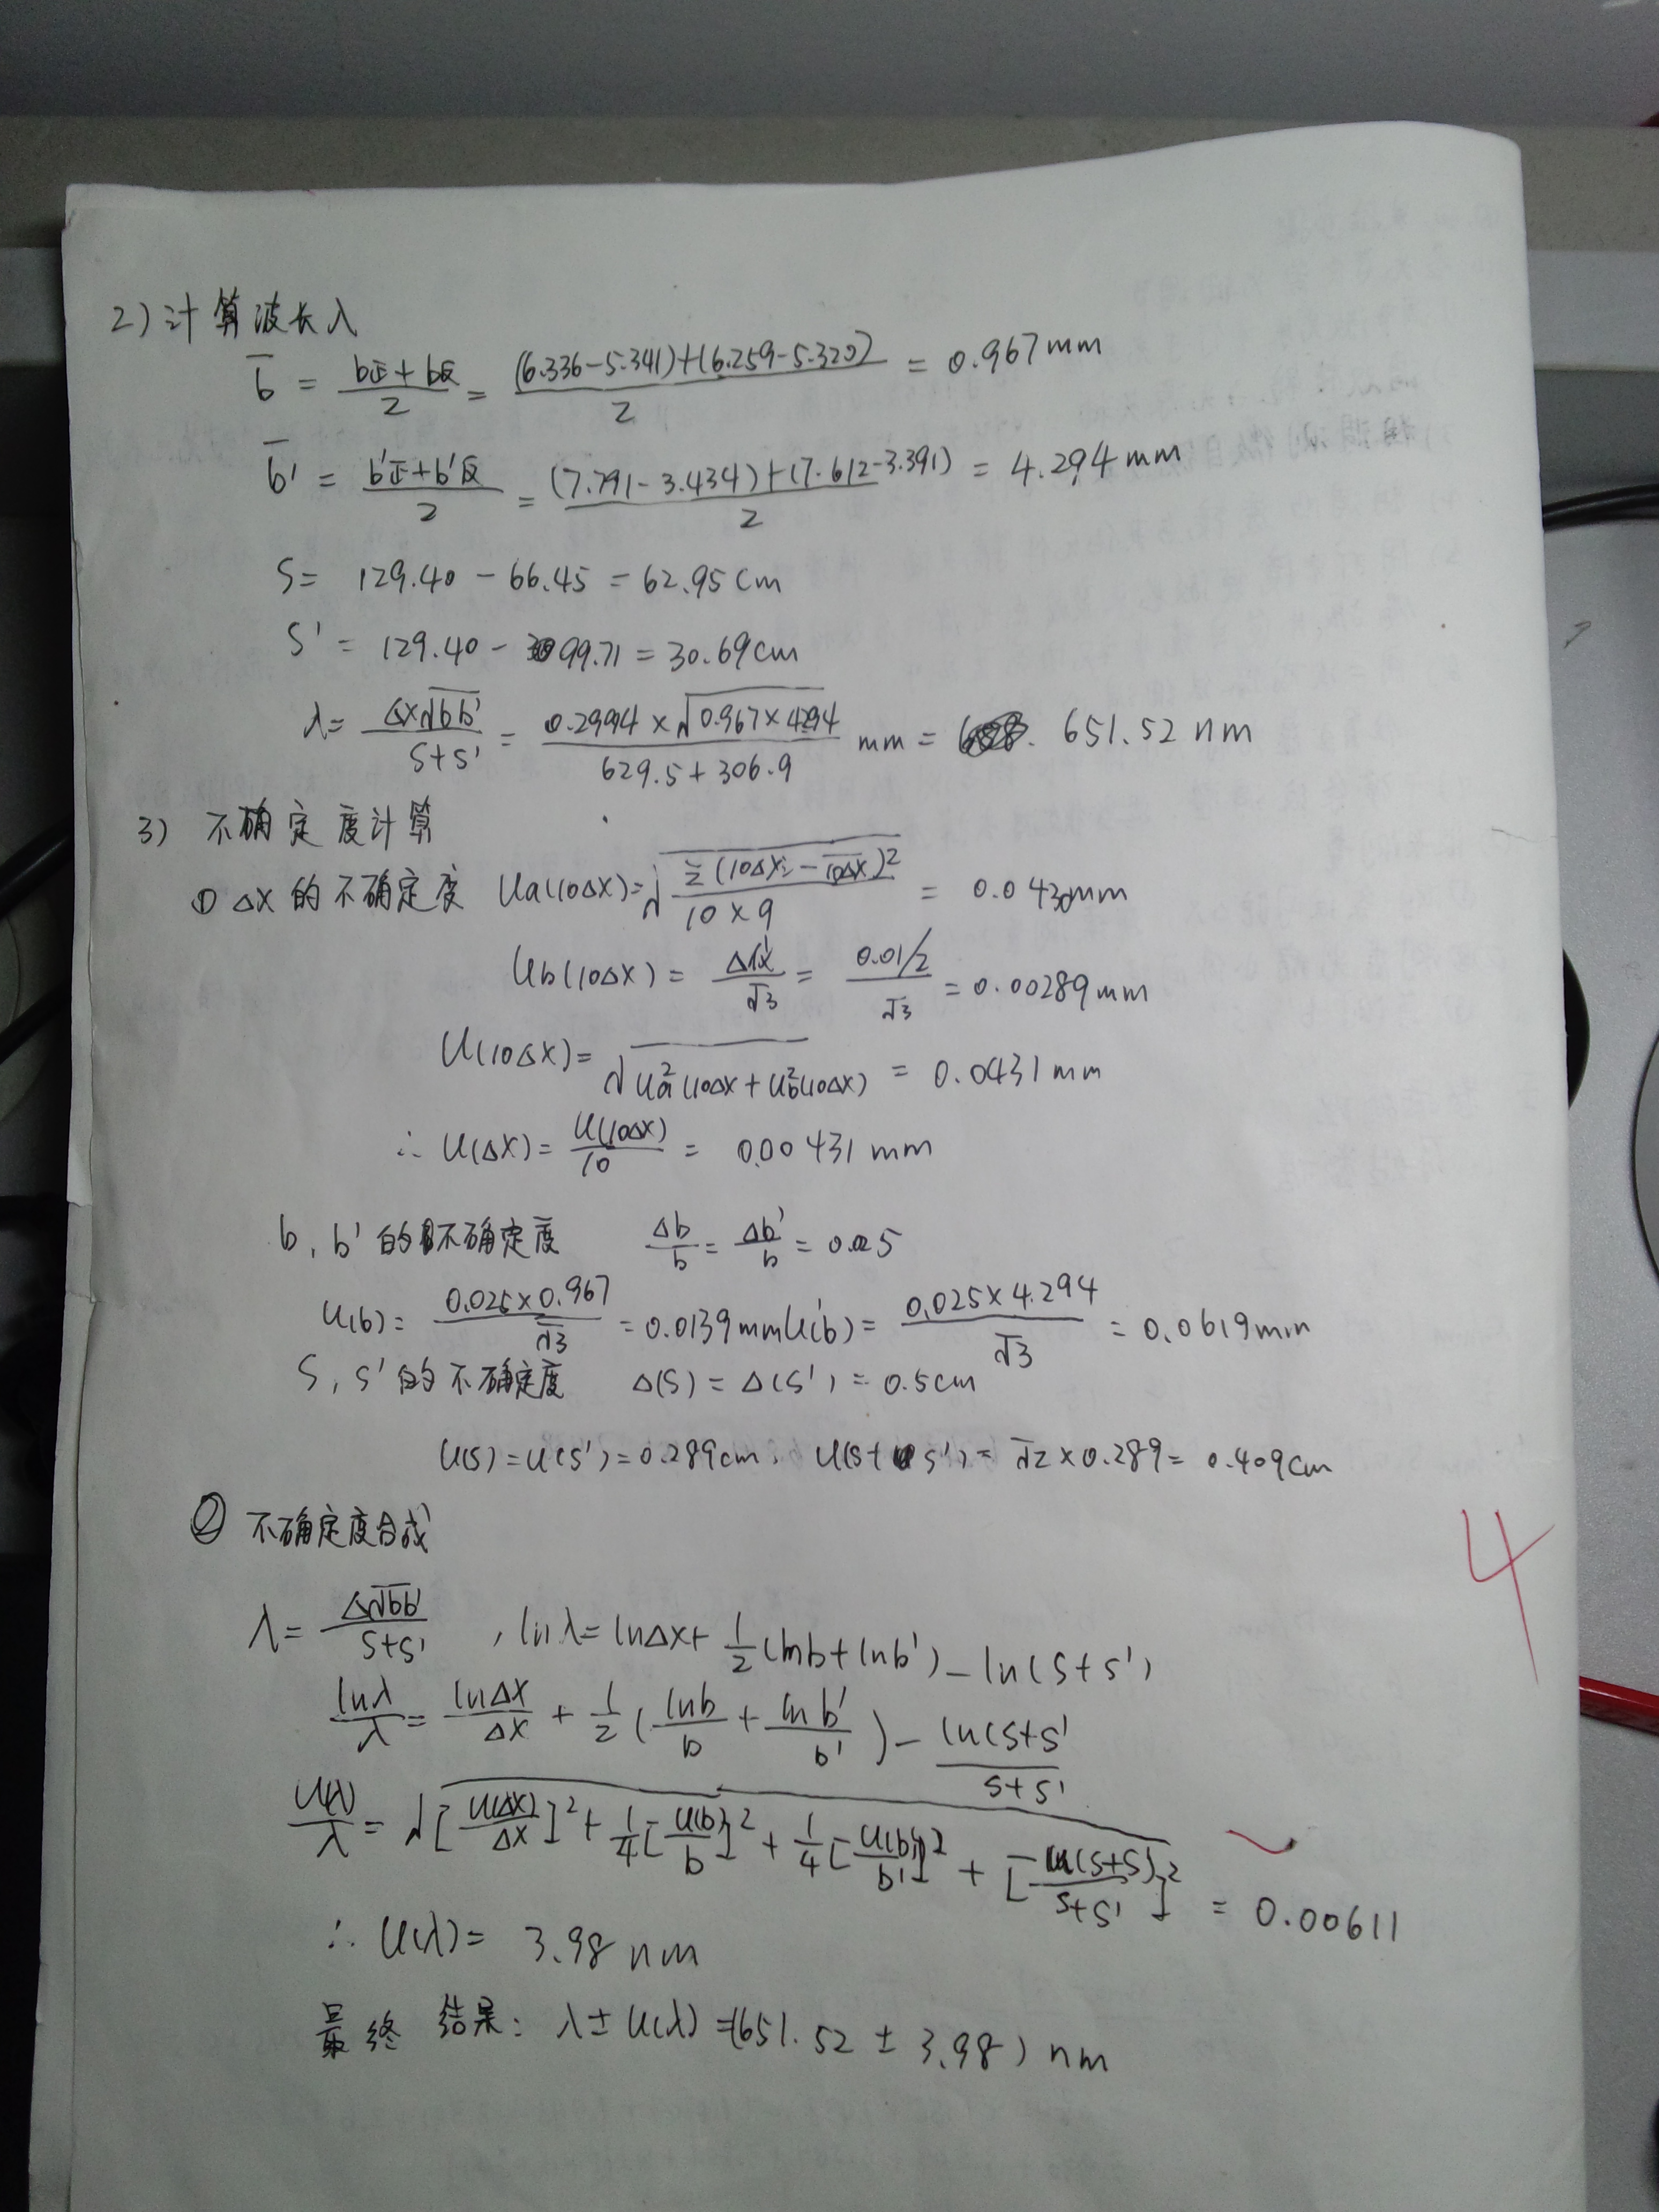 2) 计算波长λ
b̄ = (b正+b反)/2 = ((6.336-5.341)+(6.259-5.320))/2 = 0.967mm
b̄' = (b'正+b'反)/2 = ((7.791-3.434)+(7.612-3.391))/2 = 4.294mm
S= 129.40-66.45=62.95cm
S'= 129.40-99.71=30.69cm
λ= Δx√(bb')/(S+S') = 0.2994×√(0.967×4.294)/(629.5+306.9) mm = 651.52 nm
3) 不确定度计算
① Δx的不确定度 Ua(10Δx)=√(Σ(10Δxi-10Δx̄)²/(10×9)) = 0.0430mm
Ub(10Δx)= Δ仪/√3 = (0.01/2)/√3 =0.00289mm
U(10Δx)= √(Ua²(10Δx+Ub²(10Δx)) = 0.0431mm
∴ U(Δx)= U(10Δx)/10 = 0.00431mm
b, b'的不确定度 Δb/b = Δb'/b = 0.025
U(b)= 0.025×0.967/√3 =0.0139mm U(b')= 0.025×4.294/√3 = 0.0619mm
S, S'的不确定度 Δ(S)=Δ(S')=0.5cm
U(S)=U(S')=0.289cm, U(S+S')=√2×0.289=0.409cm
② 不确定度合成
λ= Δx√(bb')/(S+S') , lnλ=lnΔx+ 1/2(lnb+lnb')-ln(S+S')
lnλ/λ = lnΔx/Δx + 1/2(lnb/b + lnb'/b')- ln(S+S'/(S+S')
U(λ)/λ = √([U(Δx)/Δx]²+1/4[U(b)/b]²+1/4[U(b')/b']²+[-u(S+S)/(S+S')]²) = 0.00611
∴ U(λ)= 3.98nm
最终结果: λ±U(λ)=(651.52±3.98)nm
4